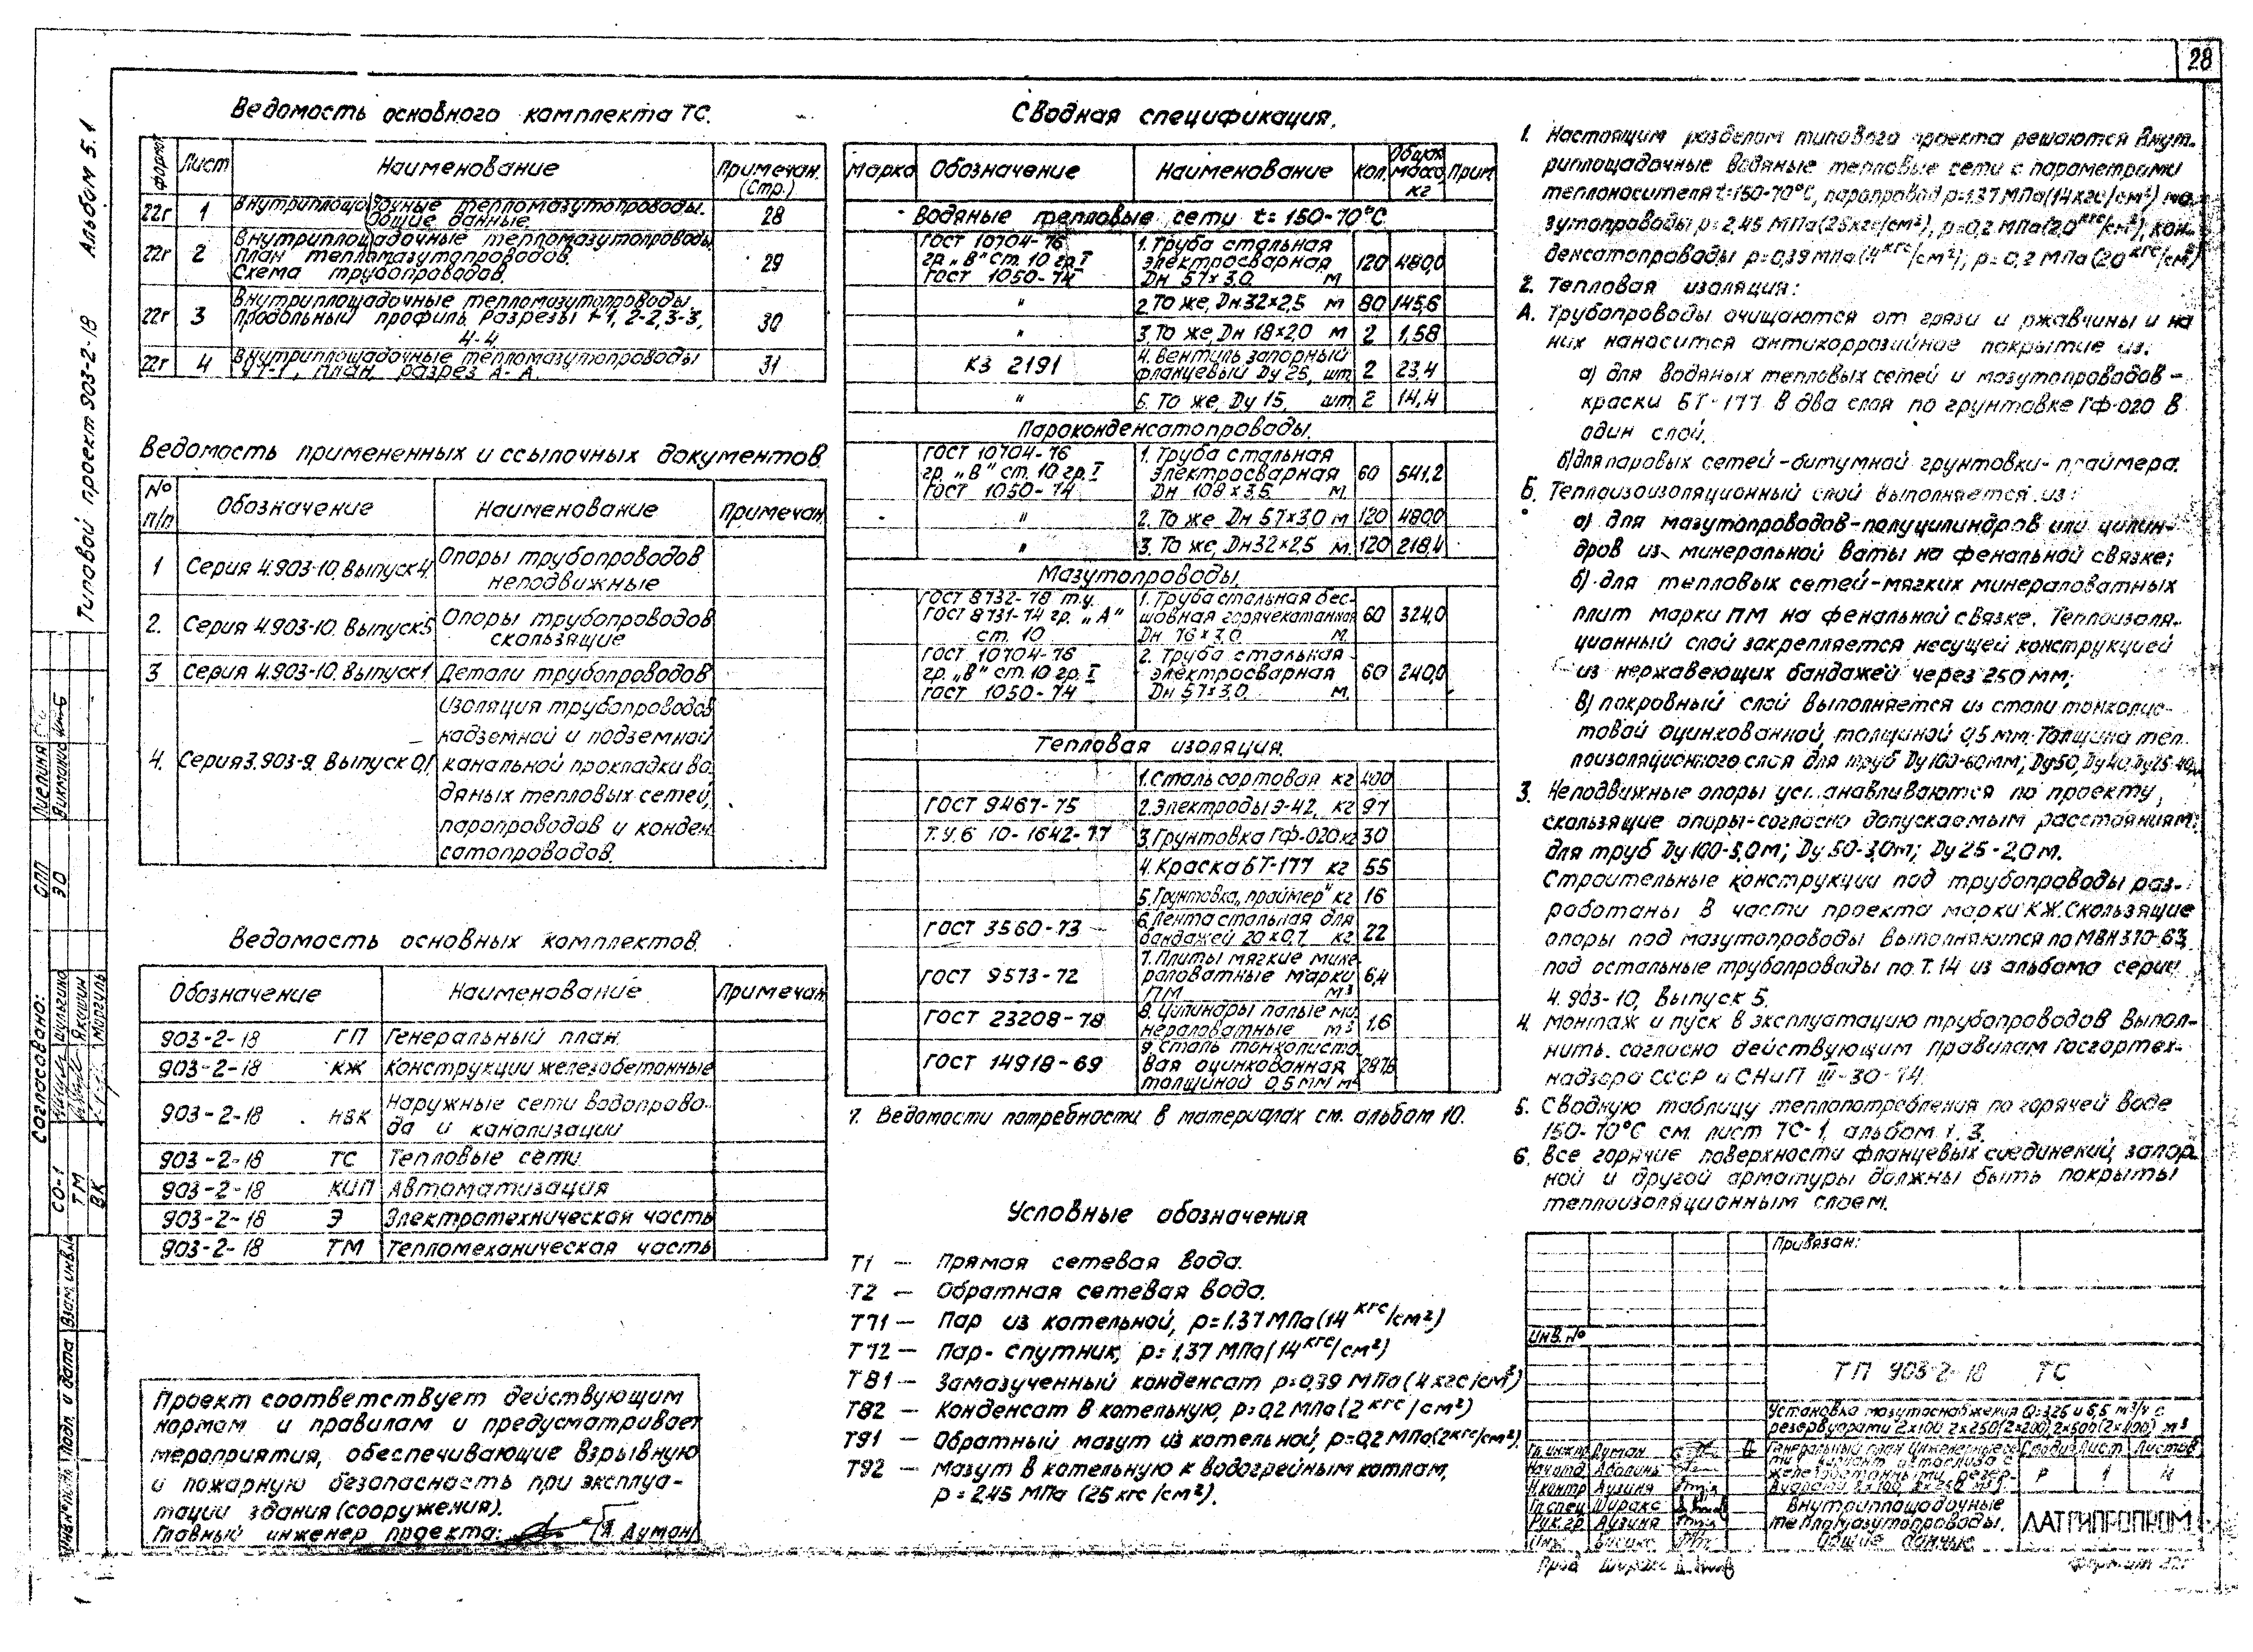 28
Альбом 5.1
Типовой проект 903-2-18
Ведомость основного комплекта ТС.
Формат
Лист
Наименование
Примечан. (Стр.)
22г 1 Внутриплощадочные тепломазутопроводы. Общие данные 28
22г 2 Внутриплощадочные тепломазутопроводы План тепломазутопроводов. Схема трубопроводов. 29
22г 3 Внутриплощадочные тепломазутопроводы Продольный профиль, разрезы 1-1, 2-2, 3-3, 4-4 30
22г 4 Внутриплощадочные тепломазутопроводы УТ-1, план, разрез А-А. 31
Ведомость примененных и ссылочных документов.
№ п/п
Обозначение
Наименование
Примечан
1 Серия 4.903-10. Выпуск 4. Опоры трубопроводов неподвижные
2. Серия 4.903-10. Выпуск 5 Опоры трубопроводов скользящие
3 Серия 4.903-10. Выпуск 1 Детали трубопроводов
4. Серия 3.903-9. Выпуск 0,1 Изоляция трубопроводов
надземной и подземной
канальной прокладки во
дяных тепловых сетей,
паропроводов и конден
сатопроводов.
Ведомость основных комплектов.
Обозначение
Наименование
Примечан
903-2-18 ГП Генеральный план
903-2-18 КЖ Конструкции железобетонные
903-2-18 НВК Наружные сети водопрово-
да и канализации
903-2-18 ТС Тепловые сети
903-2-18 КИП Автоматизация
903-2-18 Э Электротехническая часть
903-2-18 ТМ Тепломеханическая часть
Проект соответствует действующим
нормам и правилам и предусматривает
мероприятия, обеспечивающие взрывную
и пожарную безопасность при эксплуа-
тации здания (сооружения).
Главный инженер проекта: Думан
Сводная спецификация.
Марка
Обозначение
Наименование
Кол.
Общая масса, кг
Прим
Водяные тепловые сети t=150-70°С
ГОСТ 10704-76 гр. „В" ст. 10 гр. I ГОСТ 1050-74 1. Труба стальная электросварная Dн 57×3,0 м 120 480,0
" 2. То же, Dн 32×2,5 м 80 145,6
" 3. То же, Dн 18×2,0 м 2 1,58
КЗ 2191 4. Вентиль запорный фланцевый Dу 25, шт 2 23,4
" 5. То же, Dу 15, шт 2 14,4
Пароконденсатопроводы.
ГОСТ 10704-76 гр. „В" ст. 10 гр. I ГОСТ 1050-74 1. Труба стальная электросварная Dн 108×3,5 м. 60 541,2
" 2. То же Dн 57×3,0 м 120 480,0
" 3. То же, Dн 32×2,5 м 120 218,4
Мазутопроводы.
ГОСТ 8732-78 т.у. ГОСТ 8731-74 гр. „А" ст. 10 1. Труба стальная бес- шовная горячекатанная Dн 76×3,0 м. 60 324,0
ГОСТ 10704-76 гр. „В" ст. 10 гр. I ГОСТ 1050-74 2. Труба стальная электросварная Dн 57×3,0 м. 60 240,0
Тепловая изоляция.
1. Сталь сортовая кг 400
ГОСТ 9467-75 2. Электроды Э-42, кг 97
Т.У.6 10-1642-77 3. Грунтовка ГФ-020 кг 30
4. Краска БТ-177 кг 55
5. Грунтовка „праймер" кг 16
ГОСТ 3560-73 6. Лента стальная для бандажей 20×0,7 кг 22
ГОСТ 9573-72 7. Плиты мягкие мине- раловатные марки ПМ м³ 6,4
ГОСТ 23208-78 8. Цилиндры полые ми нераловатные м³ 1,6
ГОСТ 14918-69 9. Сталь тонколисто вая оцинкованная толщиной 0,5 мм м²
7. Ведомости потребности в материалах см. альбом 10.
Условные обозначения
Т1 — Прямая сетевая вода.
Т2 — Обратная сетевая вода.
Т71 — Пар из котельной, р=1.37 МПа (14 кгс/см²)
Т72 — Пар-спутник, р=1,37 МПа (14 кгс/см²)
Т81 — Замазученный конденсат р=0,39 МПа (4 кгс/см²)
Т82 — Конденсат в котельную, р=0,2 МПа (2 кгс/см²)
Т91 — Обратный мазут из котельной, р=0,2 МПа (2 кгс/см²).
Т92 — Мазут в котельную к водогрейным котлам,
р = 2,45 МПа (25 кгс/см²).
1. Настоящим разделом типового проекта решаются внут-
риплощадочные водяные тепловые сети с параметрами
теплоносителя t=150-70°С, паропровод р=1.37 МПа (14 кгс/см²) ма
зутопроводы р=2,45 МПа (25 кгс/см²), р=0,2 МПа (2,0 кгс/см²), кон-
денсатопроводы р=0,39 МПа (4 кгс/см²); р=0,2 МПа (2,0 кгс/см²)
2. Тепловая изоляция:
А. Трубопроводы очищаются от грязи и ржавчины и на
них наносится антикоррозийное покрытие из:
а) для водяных тепловых сетей и мазутопроводов –
краски БТ-177 в два слоя по грунтовке ГФ-020 в
один слой.
б) для паровых сетей – битумной грунтовки – праймера.
Б. Теплоизоизоляционный слой выполняется из:
а) для мазутопроводов – полуцилиндров или цилин-
дров из минеральной ваты на фенальной связке;
б) для тепловых сетей – мягких минераловатных
плит марки ПМ на фенальной связке. Теплоизоля-
ционный слой закрепляется несущей конструкцией
из нержавеющих бандажей через 250 мм;
в) покровный слой выполняется из стали тонколис-
товой оцинкованной, толщиной 0,5 мм. Толщина теп
лоизоляционного слоя для труб Dу100-60мм; Dу50, Dу40, Dу25-40мм
3. Неподвижные опоры устанавливаются по проекту,
скользящие опоры – согласно допускаемым расстояниям:
для труб Dу 100-5,0м; Dу 50-3,0м; Dу 25-2,0м.
Строительные конструкции под трубопроводы раз-
работаны в части проекта марки КЖ. Скользящие
опоры под мазутопроводы выполняются по МВН 370-63,
под остальные трубопроводы по Т.14 из альбома серии
4.903-10, выпуск 5.
4. Монтаж и пуск в эксплуатацию трубопроводов выпол-
нить согласно действующим правилам Госгортех-
надзора СССР и СНиП III-30-74.
5. Сводную таблицу теплопотребления по горячей воде
150-70°С см. лист ТС-1, альбом 1.3.
6. Все горячие поверхности фланцевых соединений, запор
ной и другой арматуры должны быть покрыты
теплоизоляционным слоем.
Привязан:
Инв. №
ТП 903-2-18 ТС
Установка мазутоснабжения Q=3,25 и 6,5 м³/ч с
резервуарами 2×100, 2×250 (2×200), 2×500 (2×400) м³
Гл. инж.пр Думан
Нач.отд Аболинь
Н.контр Аузиня
Гл.спец Ширакс
Рук.гр. Аузиня
Стадия Лист Листов
Р 1 4
Внутриплощадочные
тепломазутопроводы.
Общие данные
ЛАТГИПРОПРОМ
Формат 22г
Согласовано:
СО-1
ТМ
ВК
Шульгина
Якушин
Моргуль
Взам. инв.№
Подп. и дата